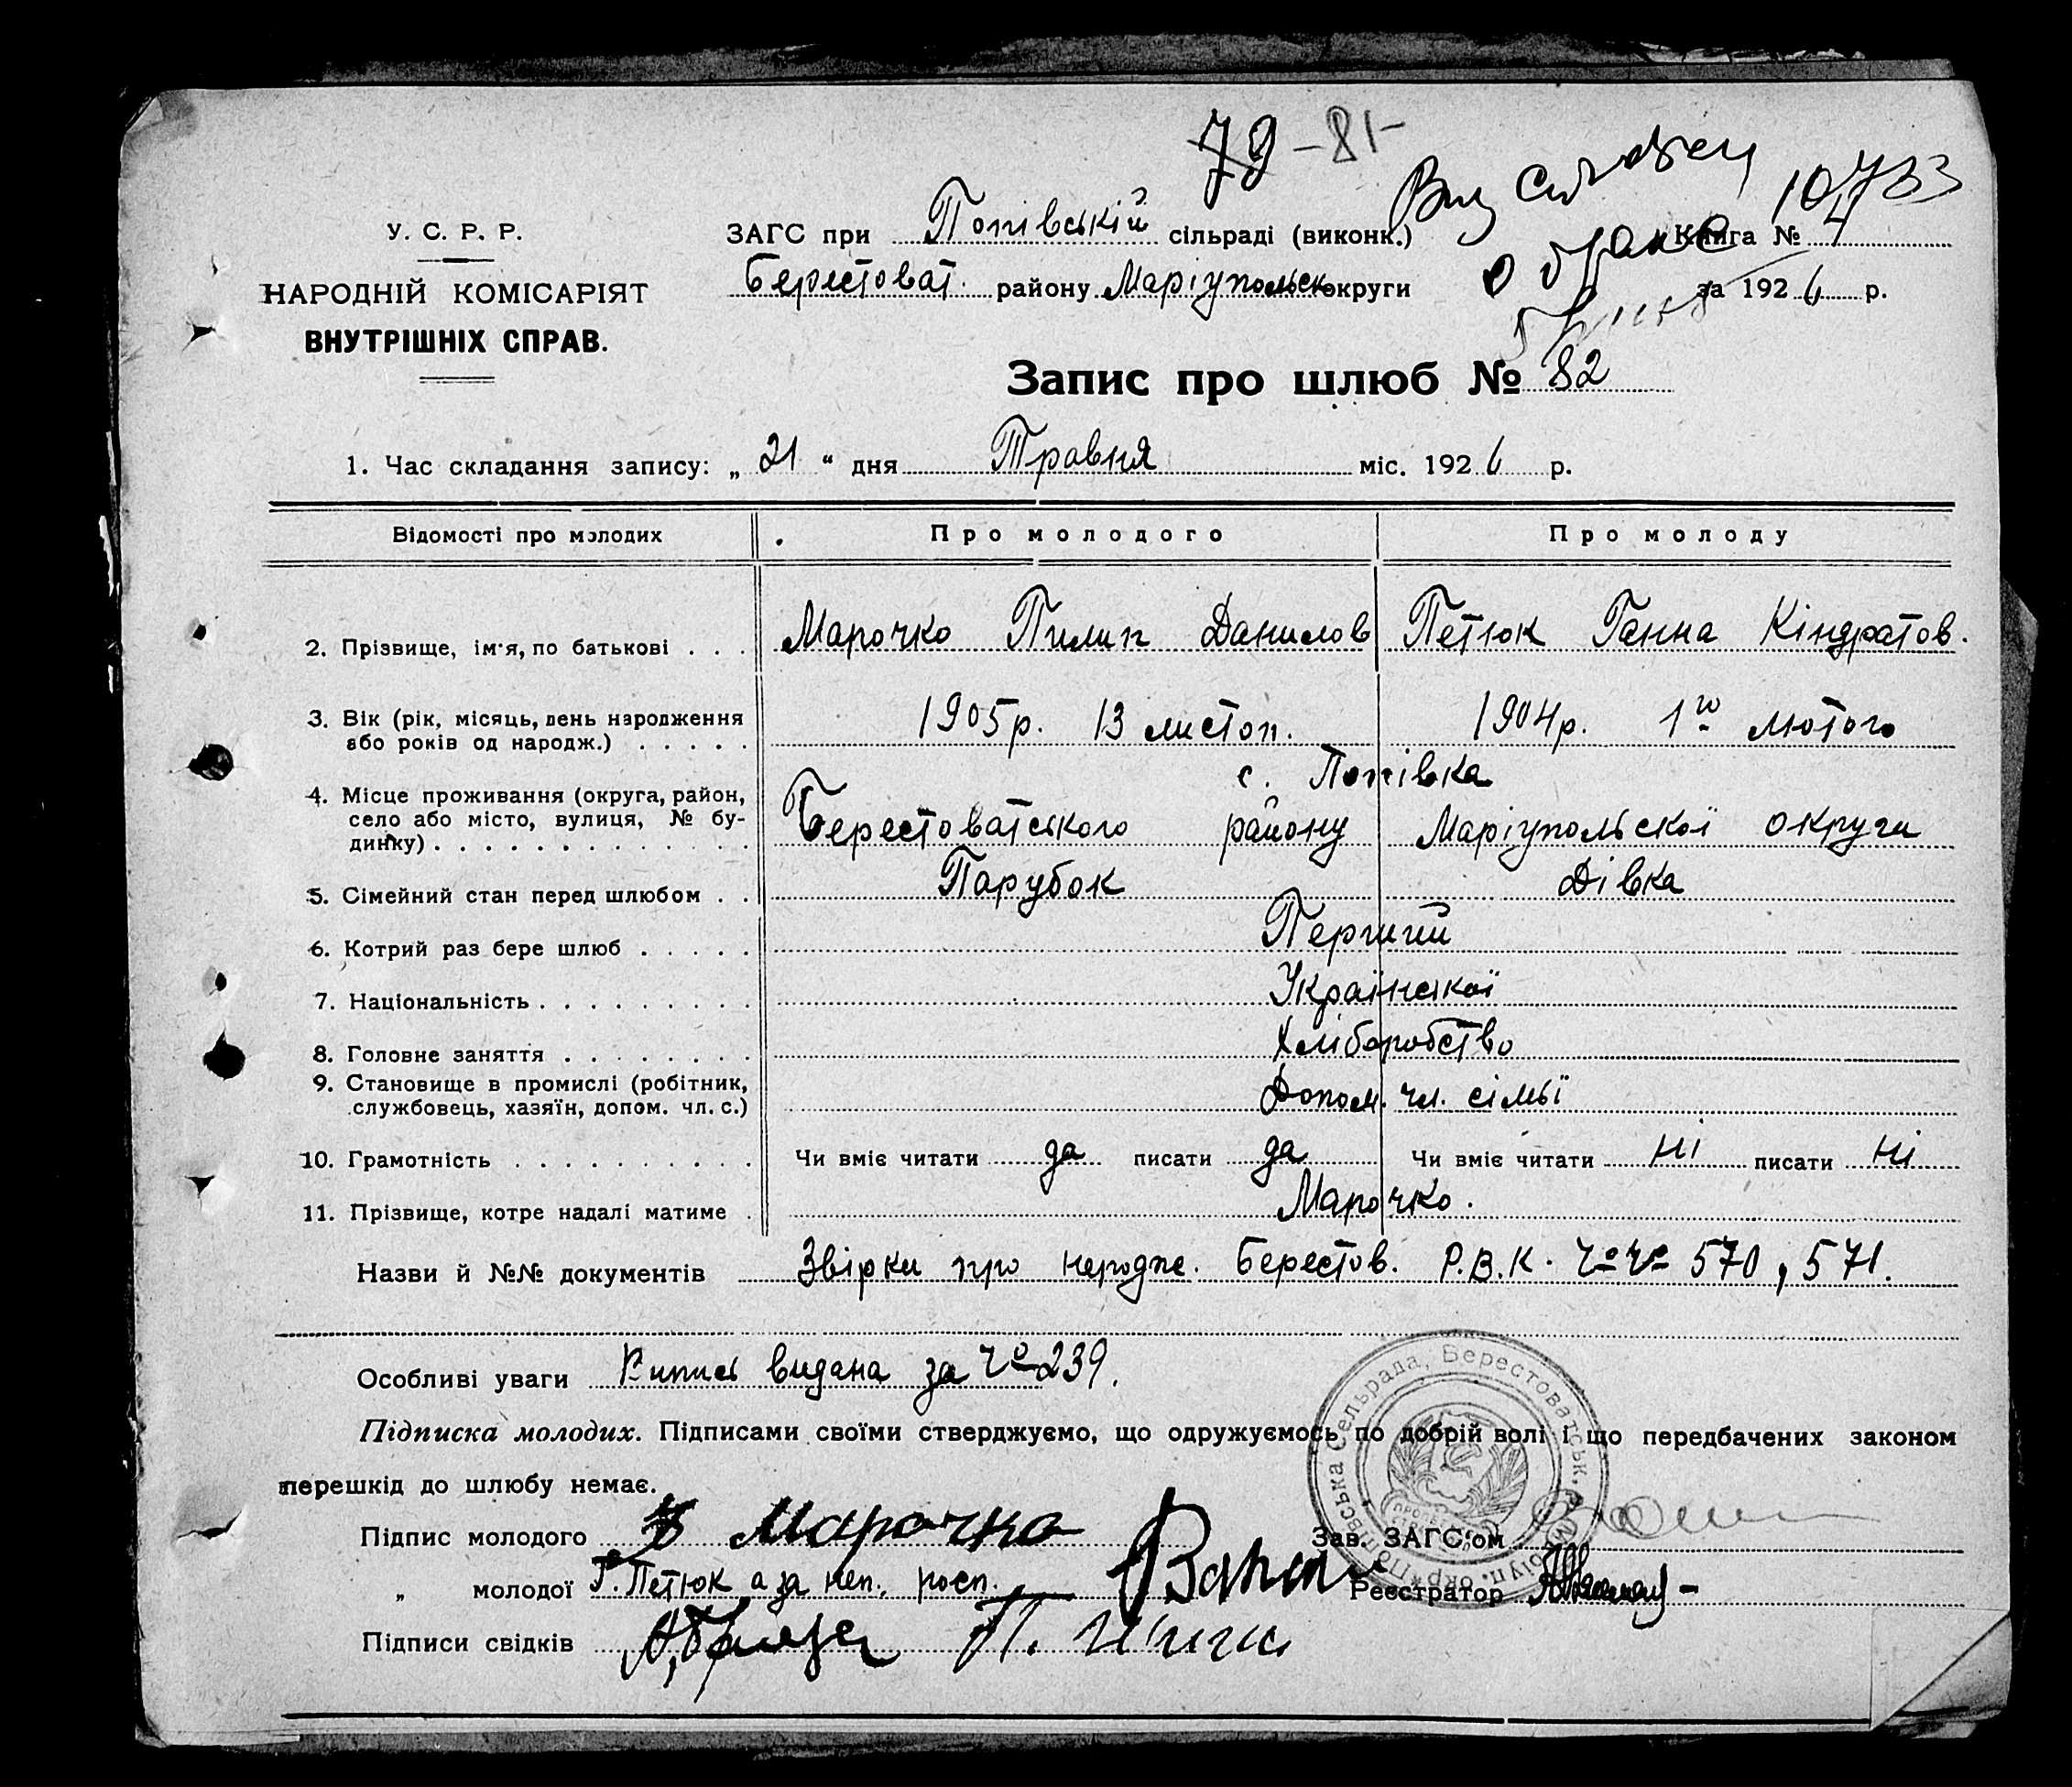 79 - 81
У. С. Р. Р.
НАРОДНІЙ КОМІСАРІЯТ
ВНУТРІШНІХ СПРАВ.
ЗАГС при Попівській сільраді (виконк.)
Берестоват. району Маріупольськ округи
о браке
Книга №
за 1926 р.
Запис про шлюб № 82
1. Час складання запису: „ 21 “ дня Травня міс. 1926 р.
Відомості про молодих Про молодого Про молоду
2. Прізвище, ім'я, по батькові . . . Марочко Пилип Данилов Петюк Ганна Кіндратов.
3. Вік (рік, місяць, день народження 1905 р. 13 листоп. 1904 р. 1го лютого
або років од народж.) . . . . .
с. Попівка
4. Місце проживання (округа, район,
село або місто, вулиця, № бу- Берестоватського району Маріупольскої округи
динку) . . . . . . . . . . . . .
5. Сімейний стан перед шлюбом . . Парубок Дівка
6. Котрий раз бере шлюб . . . . . Перший
7. Національність . . . . . . . . . Української
8. Головне заняття . . . . . . . . Хліборобство
9. Становище в промислі (робітник,
службовець, хазяїн, допом. чл. с.) Допом. чл. сімьї
10. Грамотність . . . . . . . . . . Чи вміє читати да писати да Чи вміє читати ні писати ні
11. Прізвище, котре надалі матиме . Марочко.
Назви й №№ документів Звірки про народж. Берестов. Р.В.К. Чо Чо 570, 571.
Особливі уваги Випись видана за Чо 239.
Підписка молодих. Підписами своїми стверджуємо, що одружуємось по добрій волі і що передбачених законом
перешкід до шлюбу немає.
Підпис молодого Марочко
Зав. ЗАГС'ом
„ молодої Г. Петюк а за неп. росп.
Реєстратор
Підписи свідків
Попівська Сельрада, Берестоватськ.